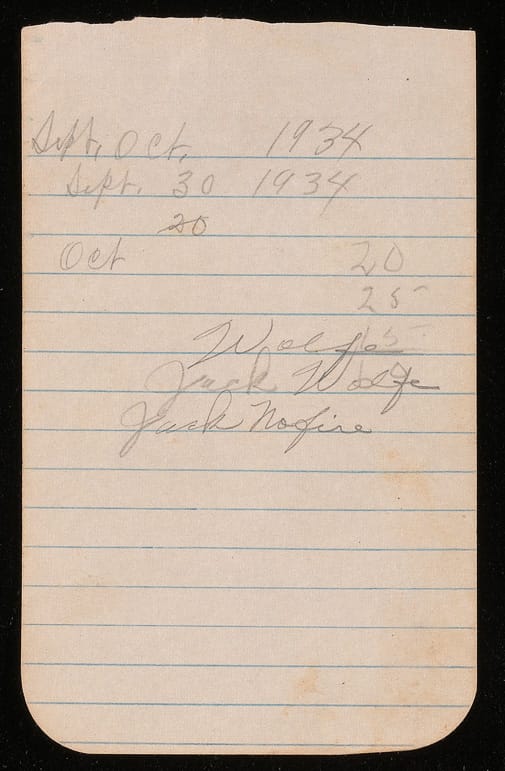 Sept. Oct. 1934
Sept. 30 1934
20
Oct 20
25
Wolfe 15
Jack Wolfe
Jack Nofire